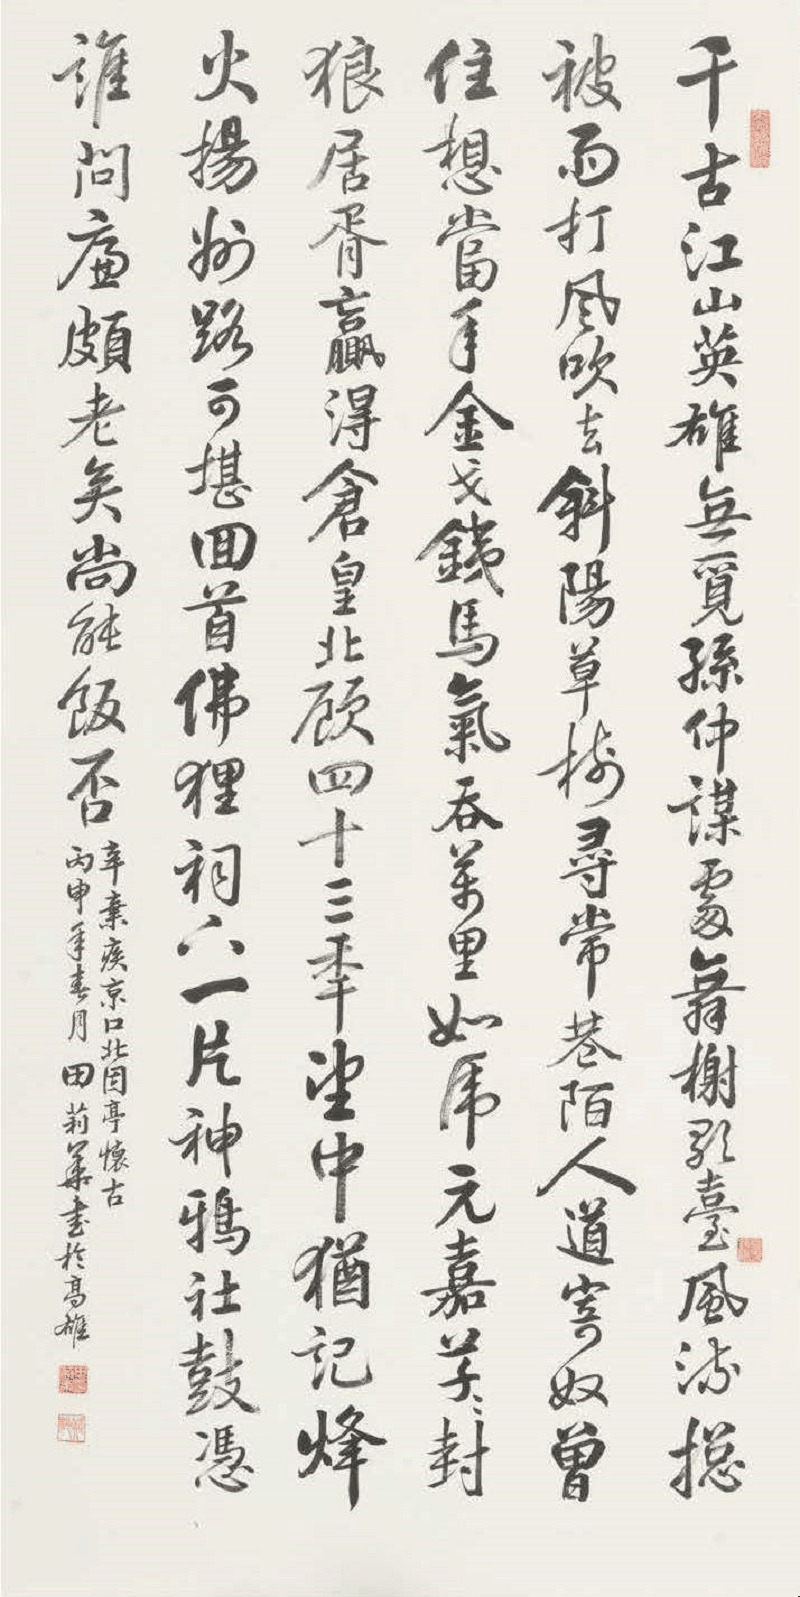 千古江山英雄無覓孫仲謀處舞榭歌臺風流總
被雨打風吹去斜陽草樹尋常巷陌人道寄奴曾
住想當年金戈鐵馬氣吞萬里如虎元嘉草草封
狼居胥贏得倉皇北顧四十三年望中猶記烽
火揚州路可堪回首佛狸祠下一片神鴉社鼓憑
誰問廉頗老矣尚能飯否
辛棄疾京口北固亭懷古
丙申年春月田莉華書於高雄